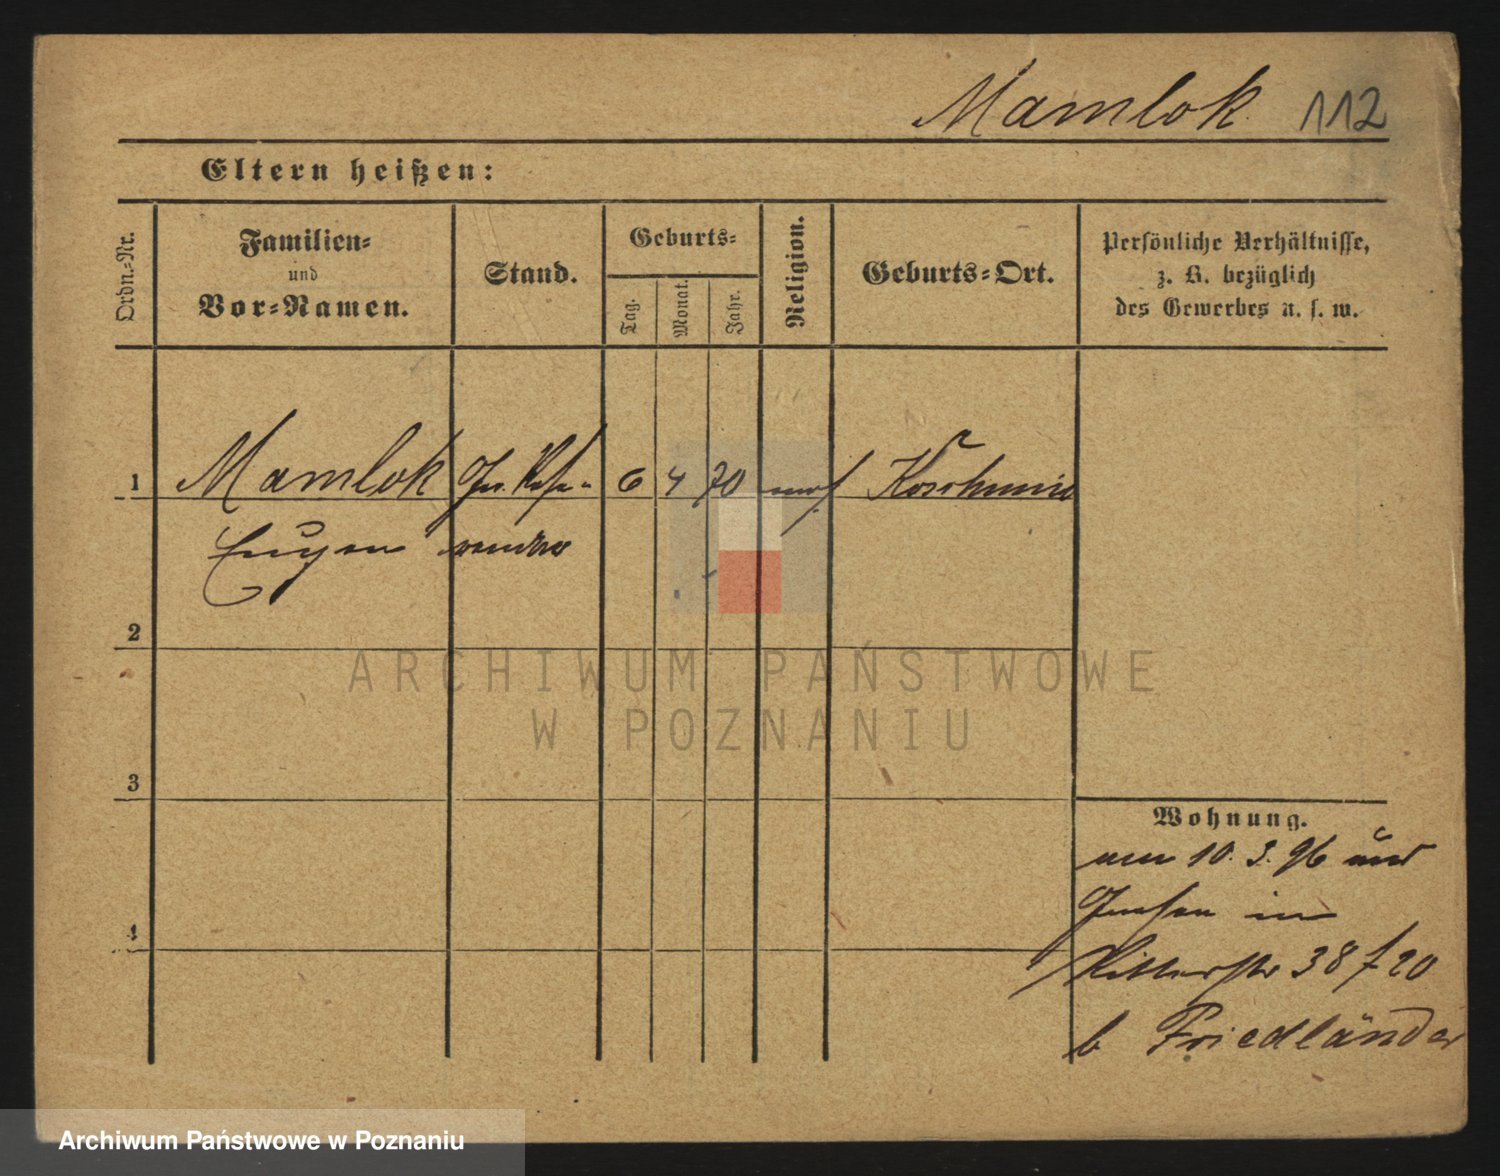 Mamlok 112
Eltern heißen:
Ordn.-Nr.
Familien-
und
Vor-Namen.
Stand.
Geburts-
Tag.
Monat.
Jahr.
Religion.
Geburts-Ort.
Persönliche Verhältnisse,
z. B. bezüglich
des Gewerbes u. s. w.
1 Mamlok Ger. Refe- 6 4 70 mos Koschmin
Eugen rendar
2
3
4
Wohnung.
am 10. 3. 96 aus
Gnesen in
Ritterstr 38 f 20
b Friedländer
ARCHIWUM PAŃSTWOWE
W POZNANIU
Archiwum Państwowe w Poznaniu